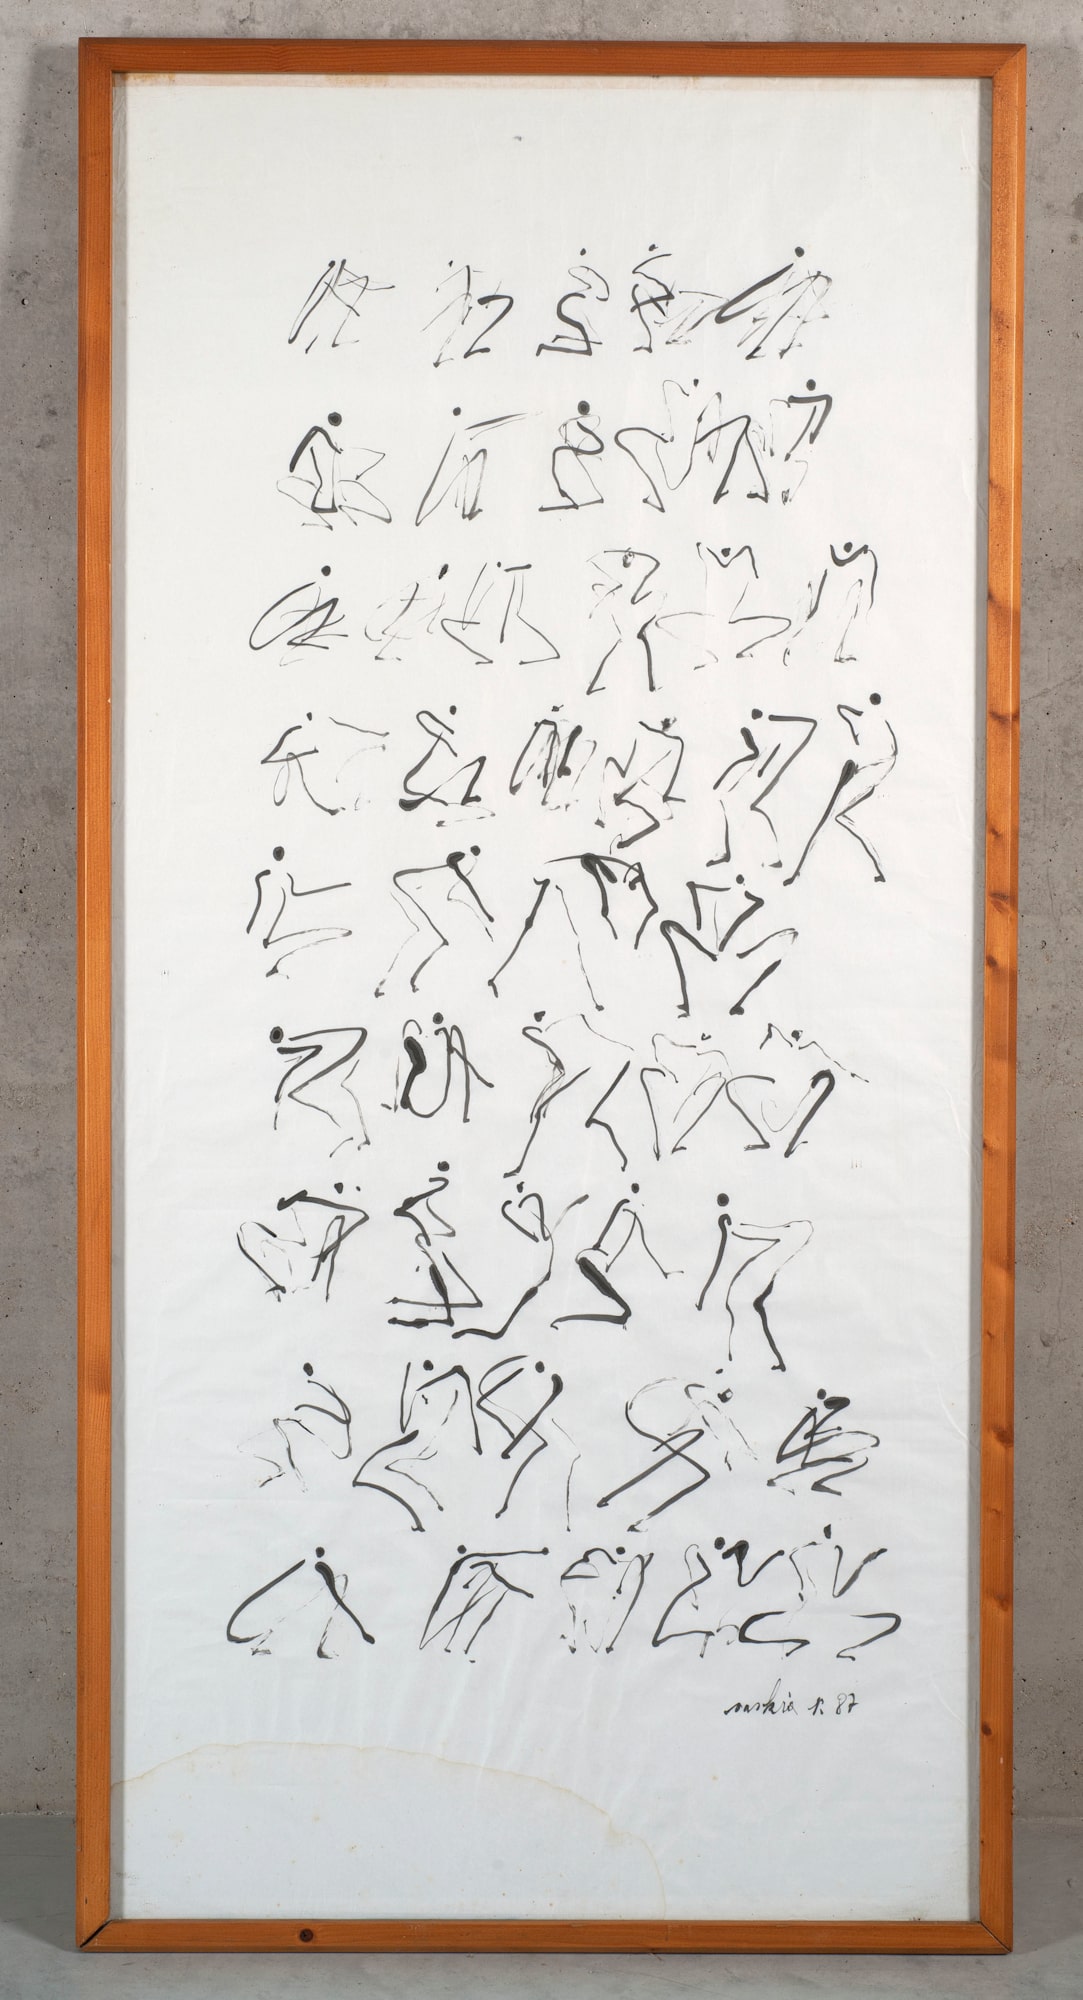 saskia p. 87